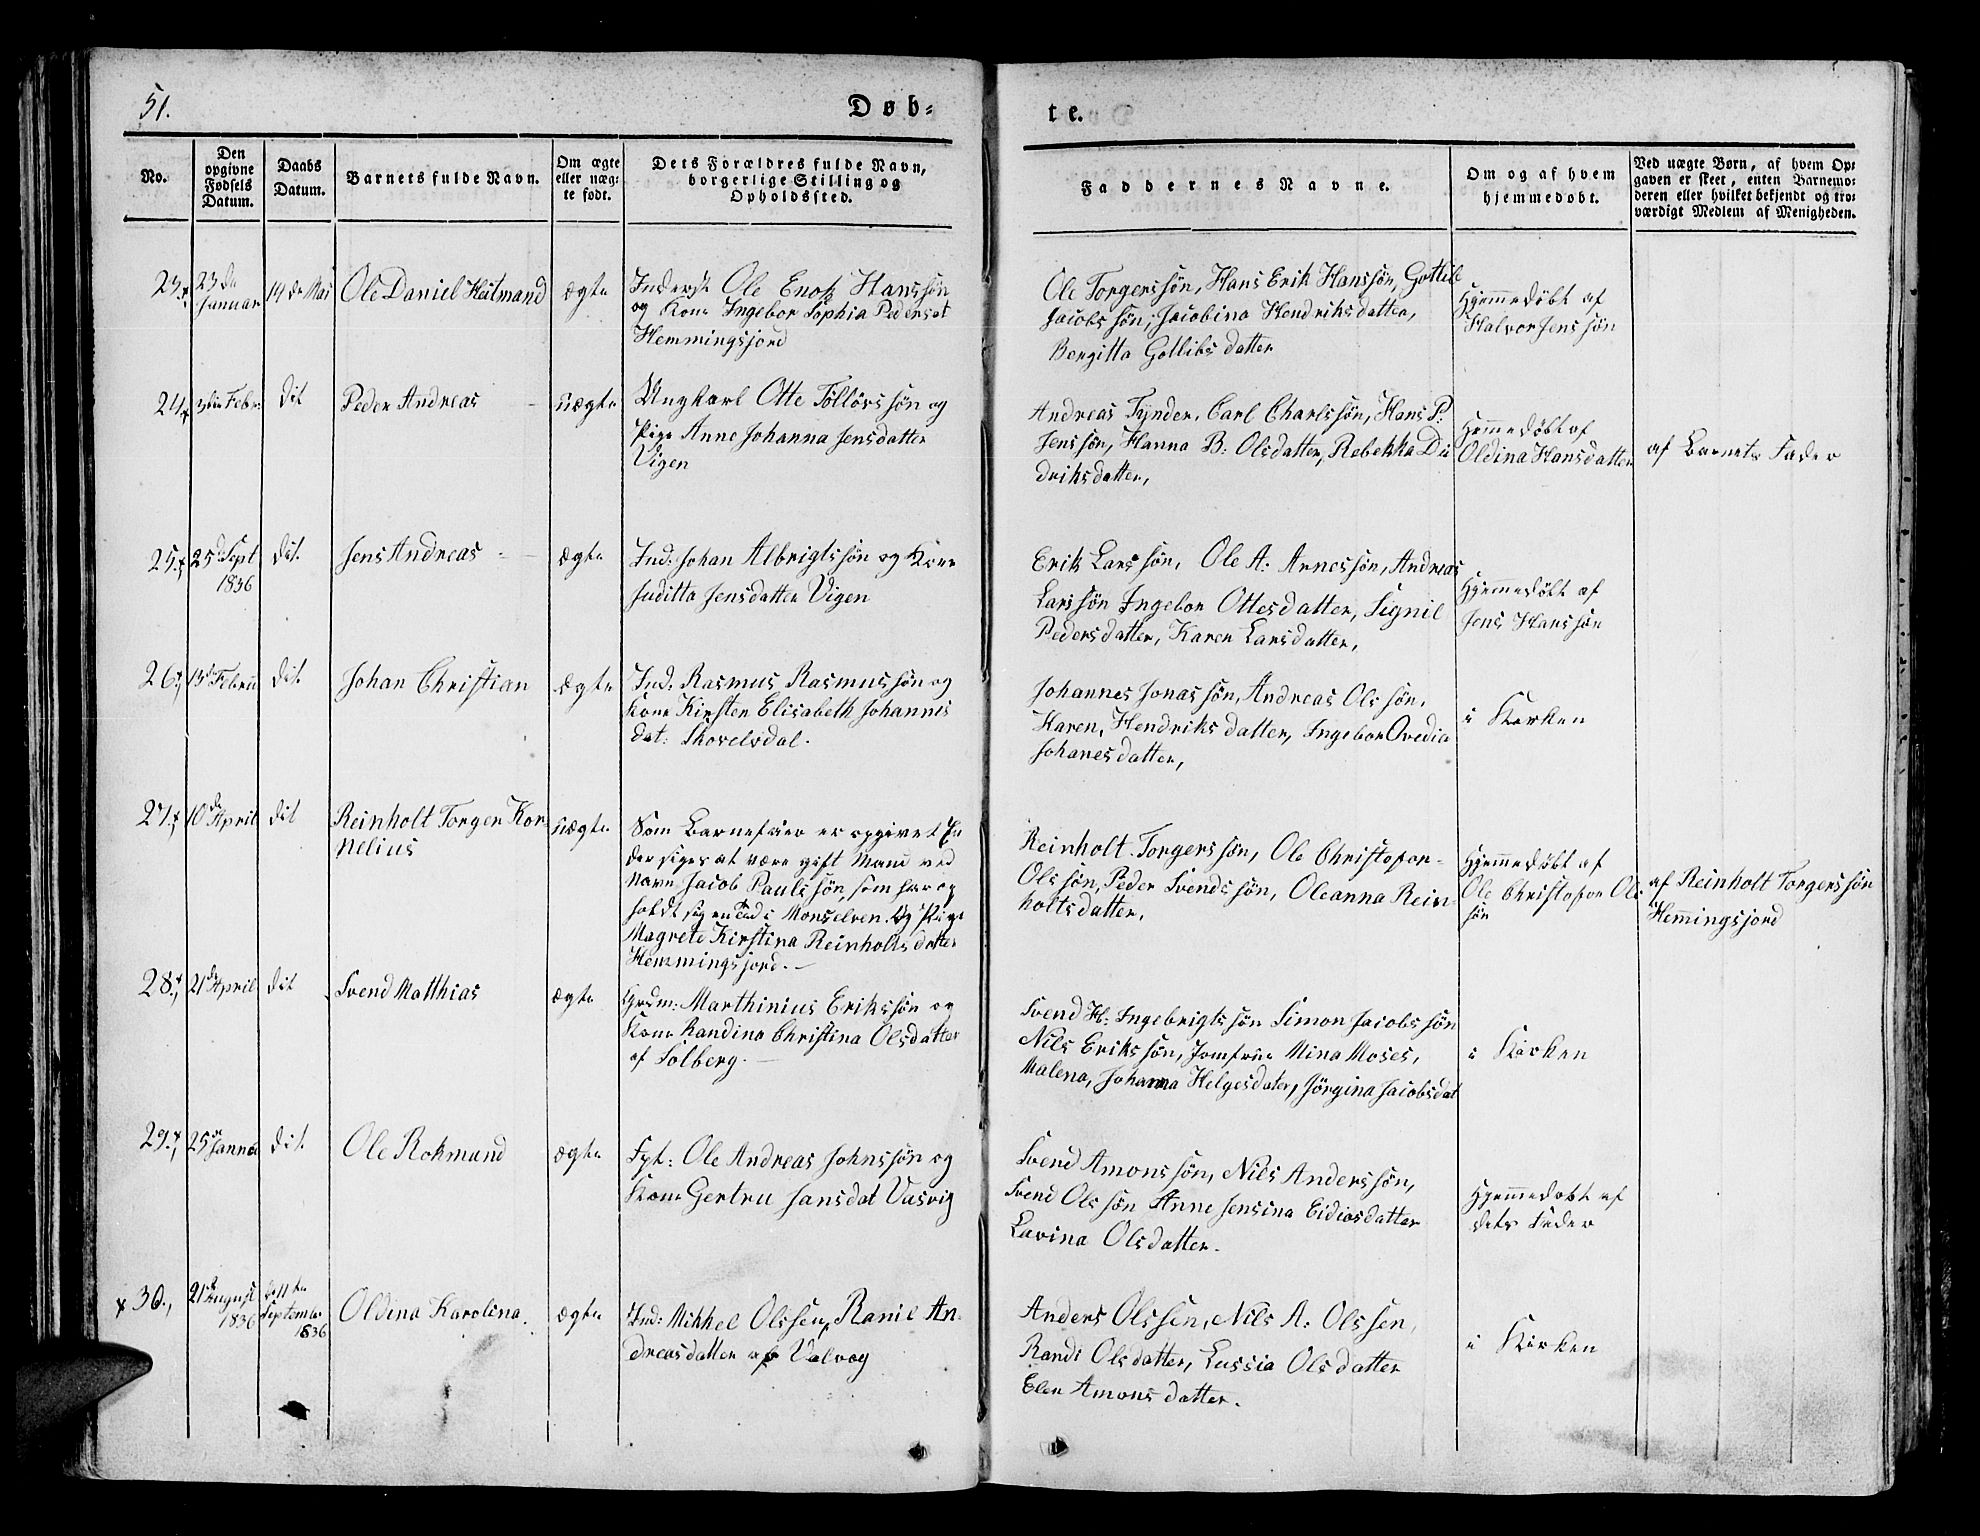 51.
Døb-
te.
No.
Den
opgivne
Fødsels
Datum.
Daabs
Datum.
Barnets fulde Navn.
Om ægte
eller uæg-
te født.
Dets Forældres fulde Navn,
borgerlige Stilling og
Opholdssted.
Faddernes Navne.
Om og af hvem
hjemmedøbt.
Ved uægte Børn, af hvem Op-
gaven er skeet, enten Barnemo-
deren eller hvilket bekjendt og tro-
værdigt Medlem af Menigheden.
23.
23de
Januar
14de Mai
Ole Daniel Heitmand
ægte
Inderst Ole Enok Hanssøn
og Kone Ingebor Sophia Pedersat
Hemmingsjord
Ole Torgerssøn, Hans Erik Hanssøn, Gottlib
Jacobssøn, Jacobina Hendriksdatter,
Bergitta Gotlibsdatter
Hjemmedøbt af
Halvor Jenssøn
24
3die Febr:
dit
Peder Andreas
uægte
Ungkarl Otte Tølløvssøn og
Pige Anne Johanna Jensdatter
Vigen
Andreas Tynder, Carl Charlssøn, Hans P:
Jenssøn, Hanna B: Olsdatter, Rebekka Di
driksdatter,
Hjemmedøbt af
Oldina Hansdatter
af Barnets Fader
25
25d Sept
1836
dit.
Jens Andreas
ægte
Ind: Johan Albrigtssøn og Kone
Juditta Jensdatter Vigen
Erik Larssøn, Ole A: Arnessøn, Andreas
Larssøn Ingebor Ottesdatter, Signil
Pedersdatter, Karen Larsdatter,
Hjemmedøbt af
Jens Hanssøn
26
13d Febru
dit
Johan Christian
ægte
Ind: Rasmus Rasmussøn og
Kone Kirsten Elisabeth Johannis
dat: Skovelsdal.
Johannes Jonassøn, Andreas Olssøn,
Karen, Hendriksdatter, Ingebor Ovedia
Johanesdatter,
i Kirken
27
10de April
dit
Reinholt Torger Kor
nelius
uægte
Som Barnefader er opgivet En
der siges at være gift Mand ved
Navn Jacob Paulssøn, som har op
holdt sig en Tid i Monselven. Og Pige
Magrete Kirstina Reinholtsdatter
Hemmingsjord.
Reinholt Torgerssøn, Ole Christofor-
Olssøn, Peder Svendssøn, Oleanna Rein
holtsdatter,
Hjemmedøbt af
Ole Christofor Ols
søn
af Reinholt Torgerssøn
Hemingsjord
28
21de April
dit
Svend Matthias
ægte
Grdm: Marthinius Erikssøn og
Kone Randina Christina Olsdatter
af Solberg.
Svend H: Ingebrigtssøn Simon Jacobssøn
Nils Erikssøn, Jomfrue Mina Moses,
Malena, Johanna Helgesdater, Jørgina Jacobsdat
i Kirken
29
25d Janua
dit
Ole Rokmund
ægte
Fgt: Ole Andreas Johnssøn og
Kone Gertru Jansdat Vasvig
Svend Amonssøn, Nils Anderssøn,
Svend Olssøn Anne Jensina Eidiosdatter
Lavina Olsdatter.
Hjemmedøbt af
dets Fader
30.
21d August
1836
d 11te
Septembr
1836
Oldina Karolina.
ægte
Ind: Mikkel Olssen, Ranil An
dreasdatter af Valvog
Anders Olssen, Nils A: Olssen,
Randi Olsdatter, Lussia Olsdatter
Elen Amonsdatter.
i Kirken